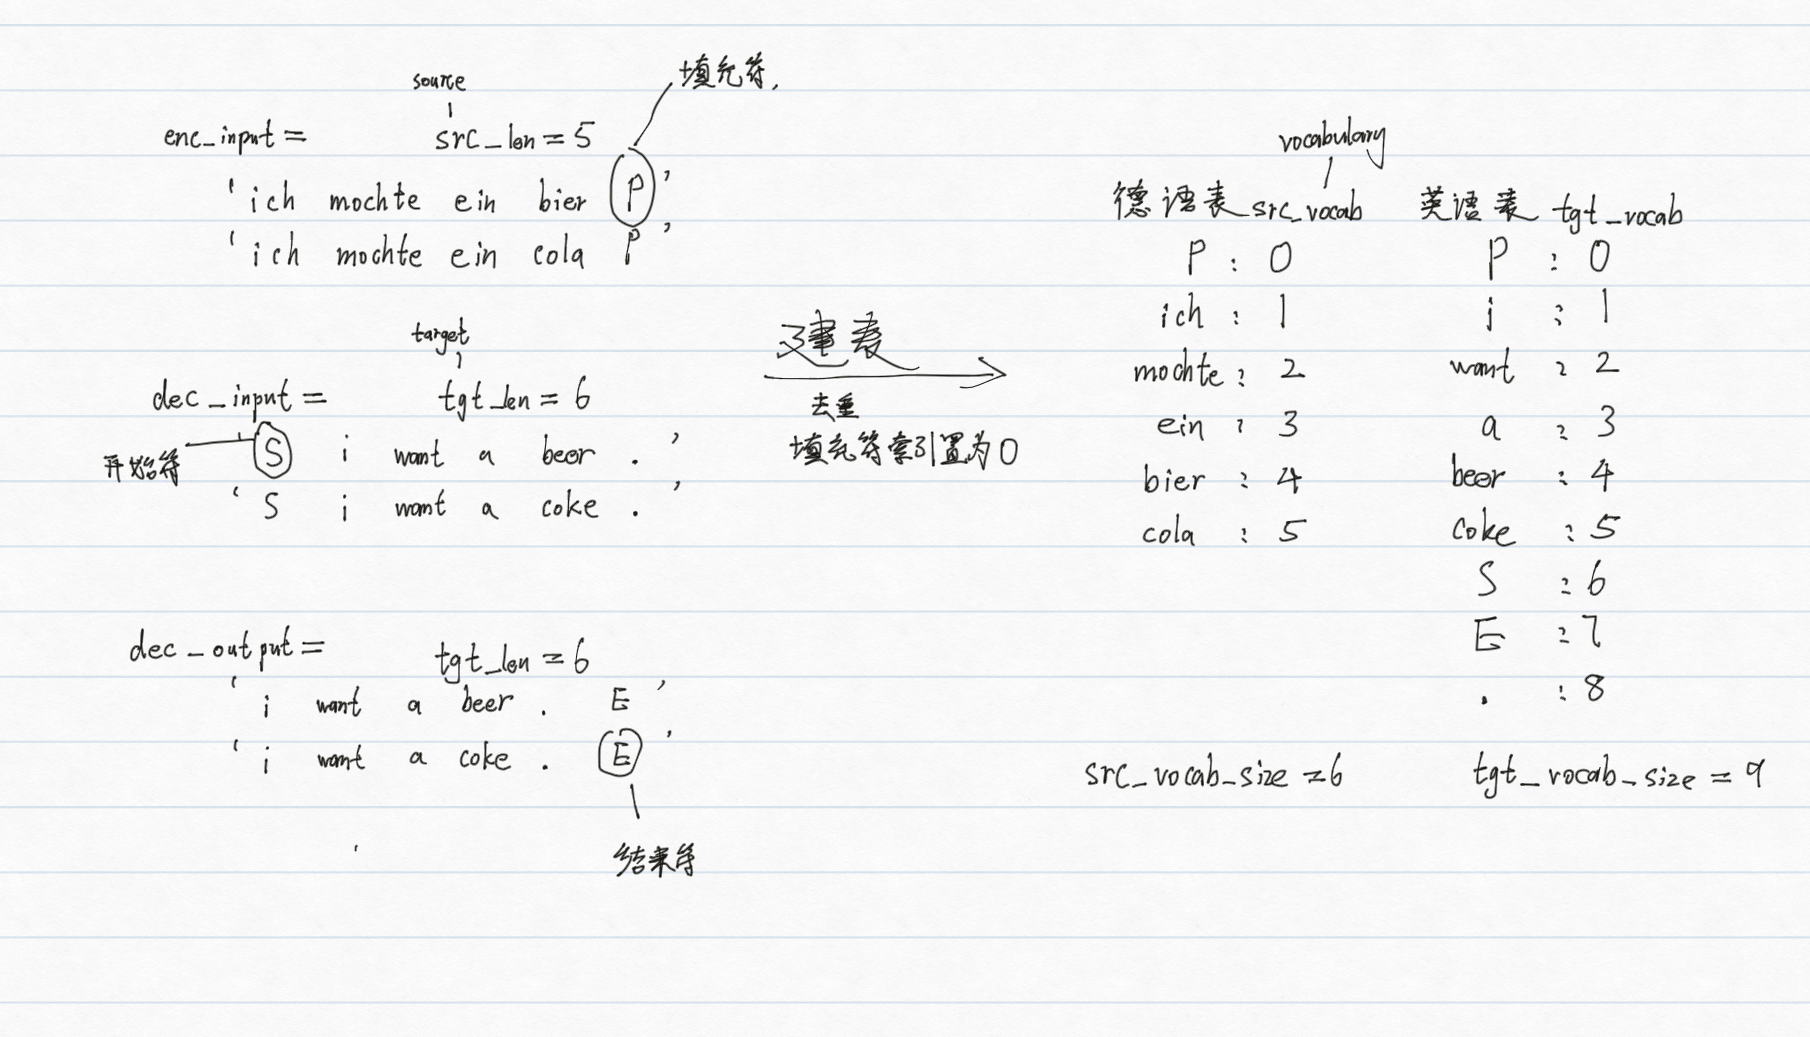 source
填充符,
enc_input =
src_len = 5
' ich mochte ein bier P '
' ich mochte ein cola P '
target
dec_input =
tgt_len = 6
开始符
' S i want a beer . '
' S i want a coke . '
dec_output =
tgt_len = 6
' i want a beer . E '
' i want a coke . E '
结束符
建表
去重
填充符索引置为0
vocabulary
德语表 src_vocab
P : 0
ich : 1
mochte : 2
ein : 3
bier : 4
cola : 5
src_vocab_size = 6
英语表 tgt_vocab
P : 0
i : 1
want : 2
a : 3
beer : 4
coke : 5
S : 6
E : 7
. : 8
tgt_vocab_size = 9